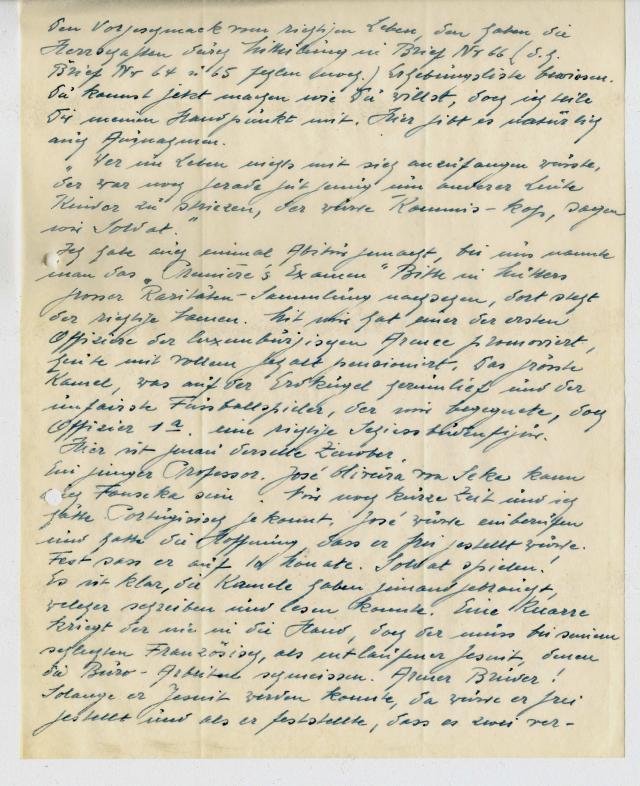 den Vorgeschmack vom richtigen Leben, den haben die
Herrschaften durch Mitteilung in Brief Nr 66 (d.h.
Brief Nr 64 u 65 fehlen noch.) Ergebungsliste bewiesen.
Du kannst jetzt machen wie Du willst, doch ich teile
Dir meinen Standpunkt mit. Hier gibt es natürlich
auch Ausnahmen.
"Wer im Leben nichts mit sich anzufangen wüsste,
der war noch gerade gut genug um anderer Leute
Kinder zu striezen, der würde Kommis-kop, sagen
wir Soldat."
Ich habe auch einmal Abitur gemacht, bei uns nannte
man das "Première's Examen" Bitte in Mutters
grosser "Raritäten-Sammlung nachsehen, dort steht
der richtige Namen. Mit mir hat einer der ersten
Offiziere der luxemburgischen Armee promoviert,
heute mit vollem Gehalt pensioniert. Das grösste
Kamel, was auf der Erdkugel herumlief und der
unfairste Fussballspieler, der mir begegnete, doch
Offizier 1a. eine richtige Schiessbudenfigur.
Hier ist genau derselbe Zauber.
Ein junger Professor. José Oliveira von Seka kann
auch Fonseka sein. Nur noch kurze Zeit und ich
hätte Portugisisch gekonnt. José würde einberufen
und hatte die Hoffnung dass er frei gestellt würde.
Fest sass er auf 18 Monate. Soldat spielen!
Es ist klar, die Kamele haben jemand gebraucht,
welcher schreiben und lesen konnte. Eine Knarre
kriegt der nie in die Hand, doch der muss bei seinem
schlechten Französisch, als entlaufener Jesuit, denen
die Büro-Arbeiten schmeissen. Armer Bruder!
Solange er Jesuit werden konnte, da würde er frei
gestellt und als er feststellte, dass es zwei ver-